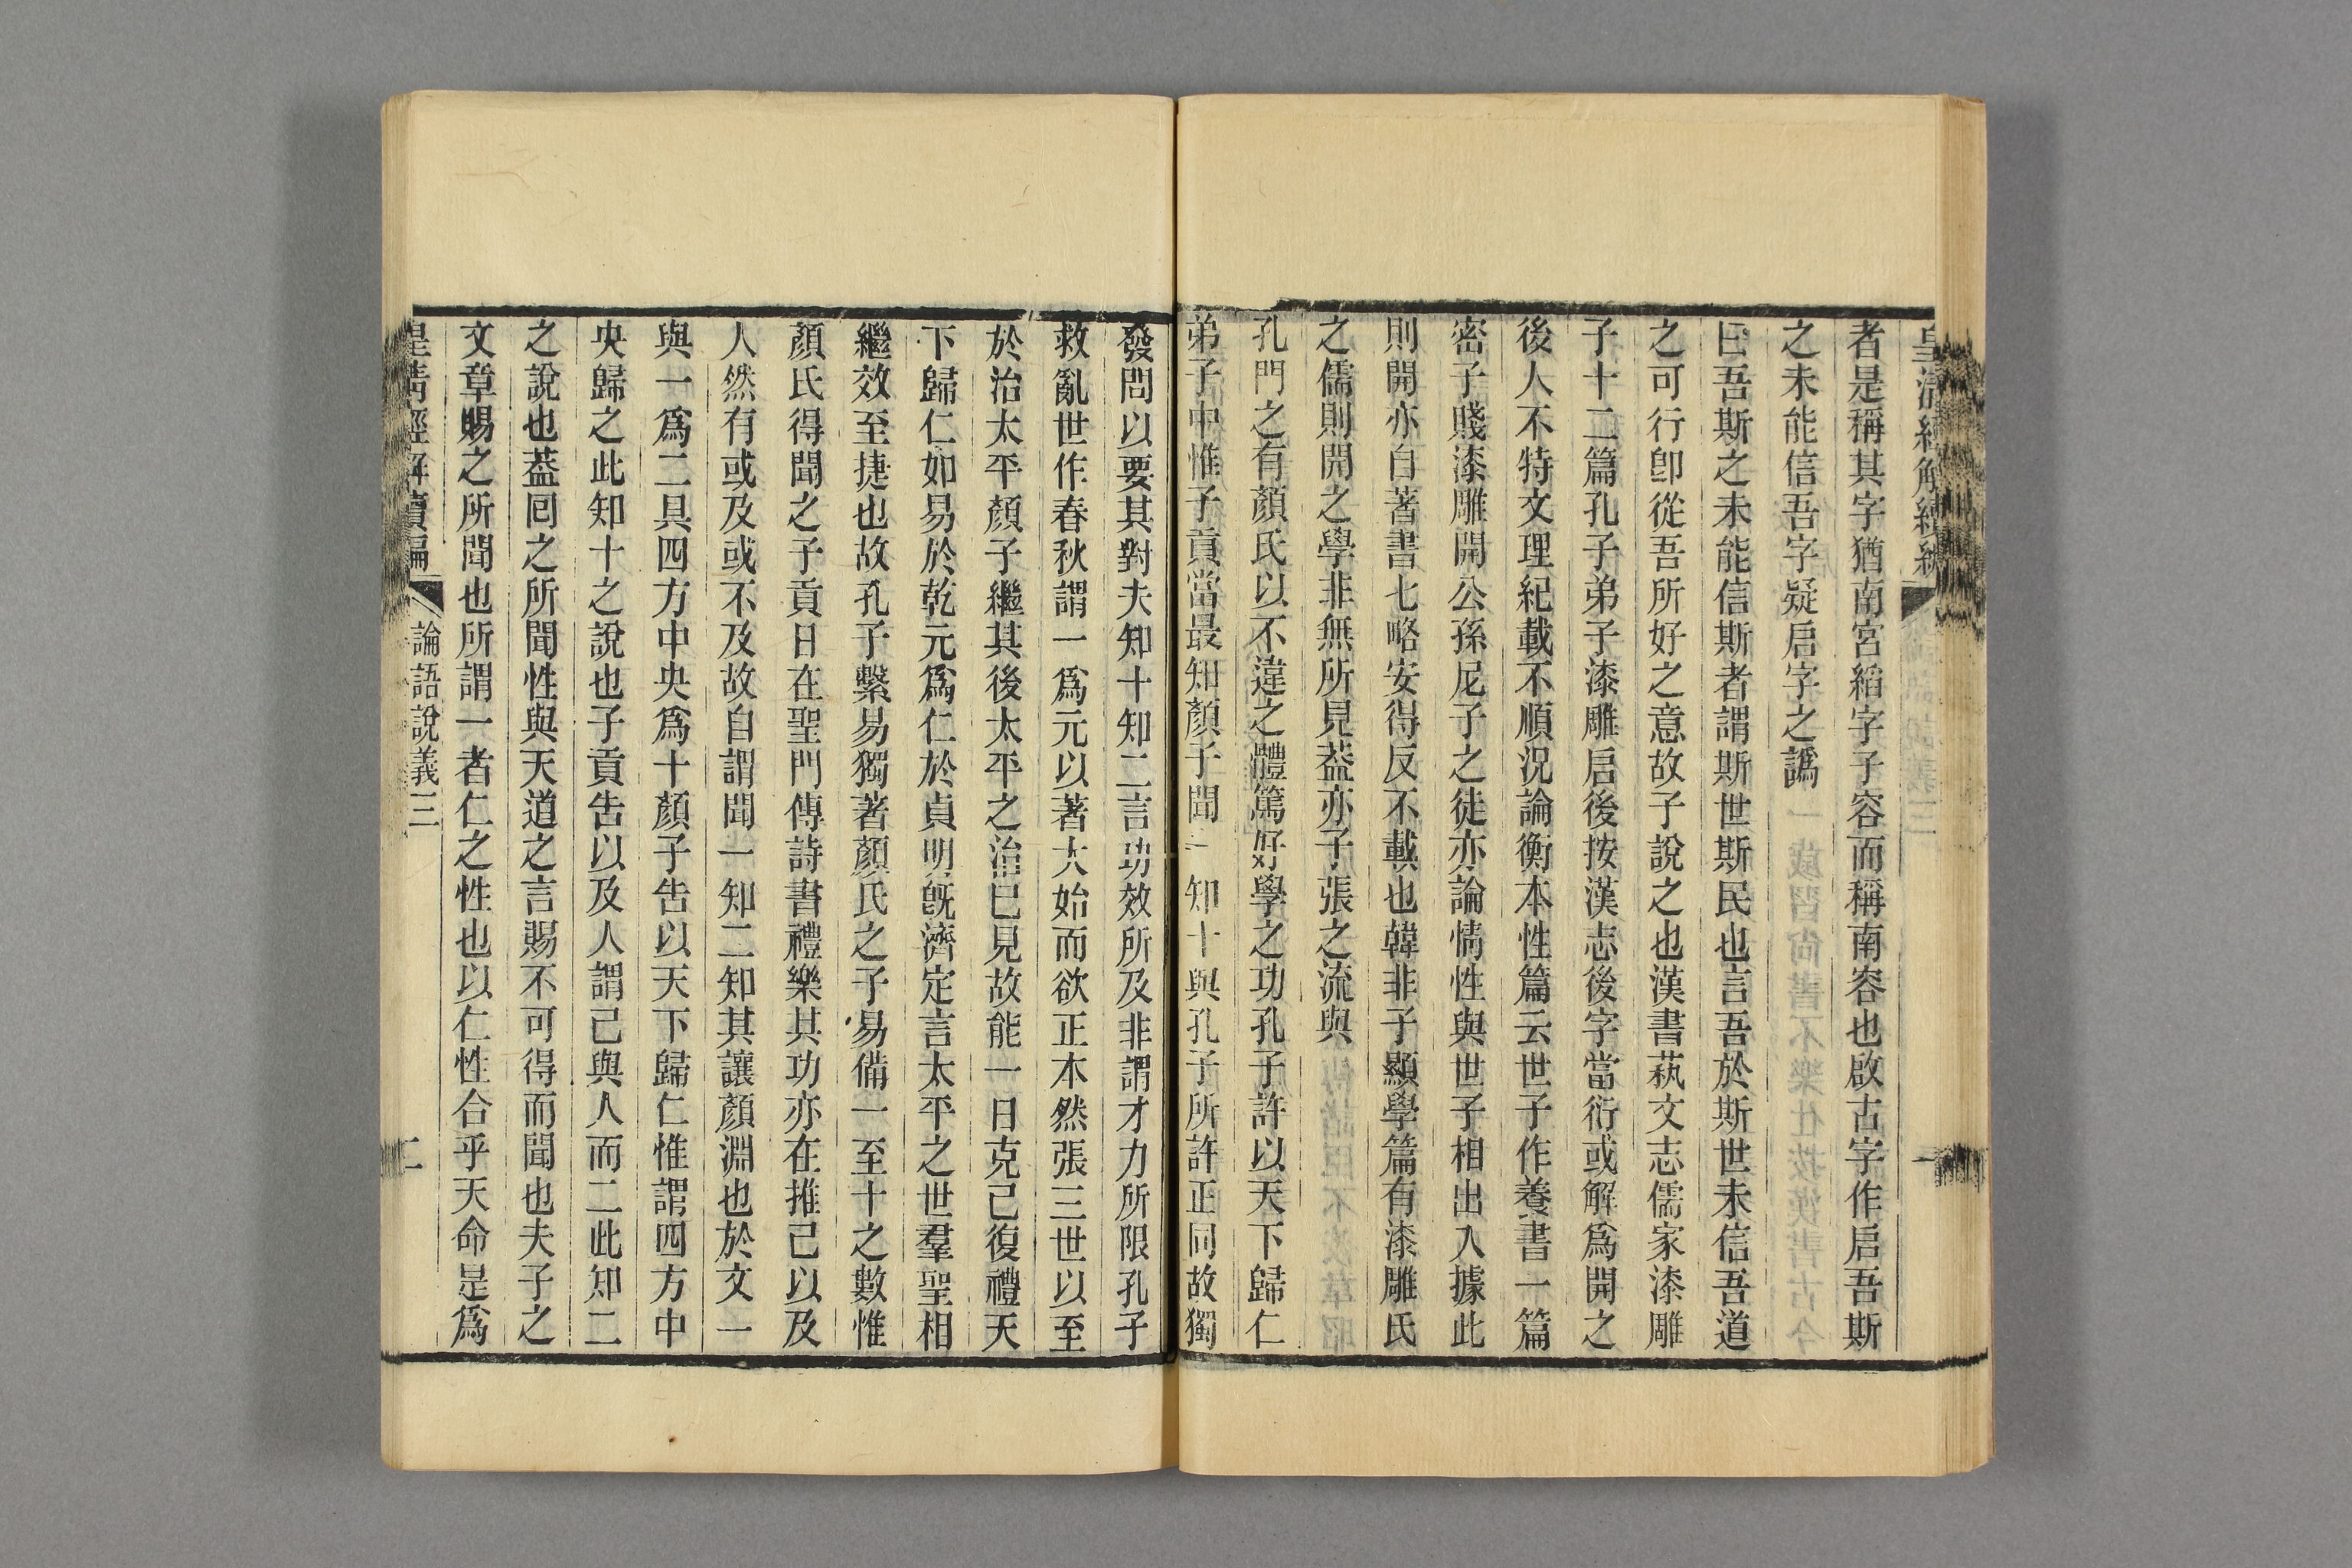 皇清經解續編
一
者是稱其字猶南宮縚字子容而稱南容也啟古字作启吾斯
之未能信吾字疑启字之譌
曰吾斯之未能信斯者謂斯世斯民也言吾於斯世未信吾道
之可行卽從吾所好之意故子說之也漢書蓺文志儒家漆雕
子十二篇孔子弟子漆雕启後按漢志後字當衍或解爲開之
後人不特文理紀載不順況論衡本性篇云世子作養書一篇
密子賤漆雕開公孫尼子之徒亦論情性與世子相出入據此
則開亦自著書七略安得反不載也韓非子顯學篇有漆雕氏
之儒則開之學非無所見葢亦子張之流與
孔門之有顏氏以不違之體篤好學之功孔子許以天下歸仁
弟子中惟子貢當最知顏子聞一知十與孔子所許正同故獨
發問以要其對夫知十知二言功效所及非謂才力所限孔子
救亂世作春秋謂一爲元以著大始而欲正本然張三世以至
於治太平顏子繼其後太平之治已見故能一日克己復禮天
下歸仁如易於乾元爲仁於貞明旣濟定言太平之世羣聖相
繼效至捷也故孔子繫易獨著顏氏之子易備一至十之數惟
顏氏得聞之子貢日在聖門傳詩書禮樂其功亦在推己以及
人然有或及或不及故自謂聞一知二知其讓顏淵也於文一
與一爲二具四方中央爲十顏子告以天下歸仁惟謂四方中
央歸之此知十之說也子貢告以及人謂己與人而二此知二
之說也葢囘之所聞性與天道之言賜不可得而聞也夫子之
文章賜之所聞也所謂一者仁之性也以仁性合乎天命是爲
皇清經解續編
論語說義三
二